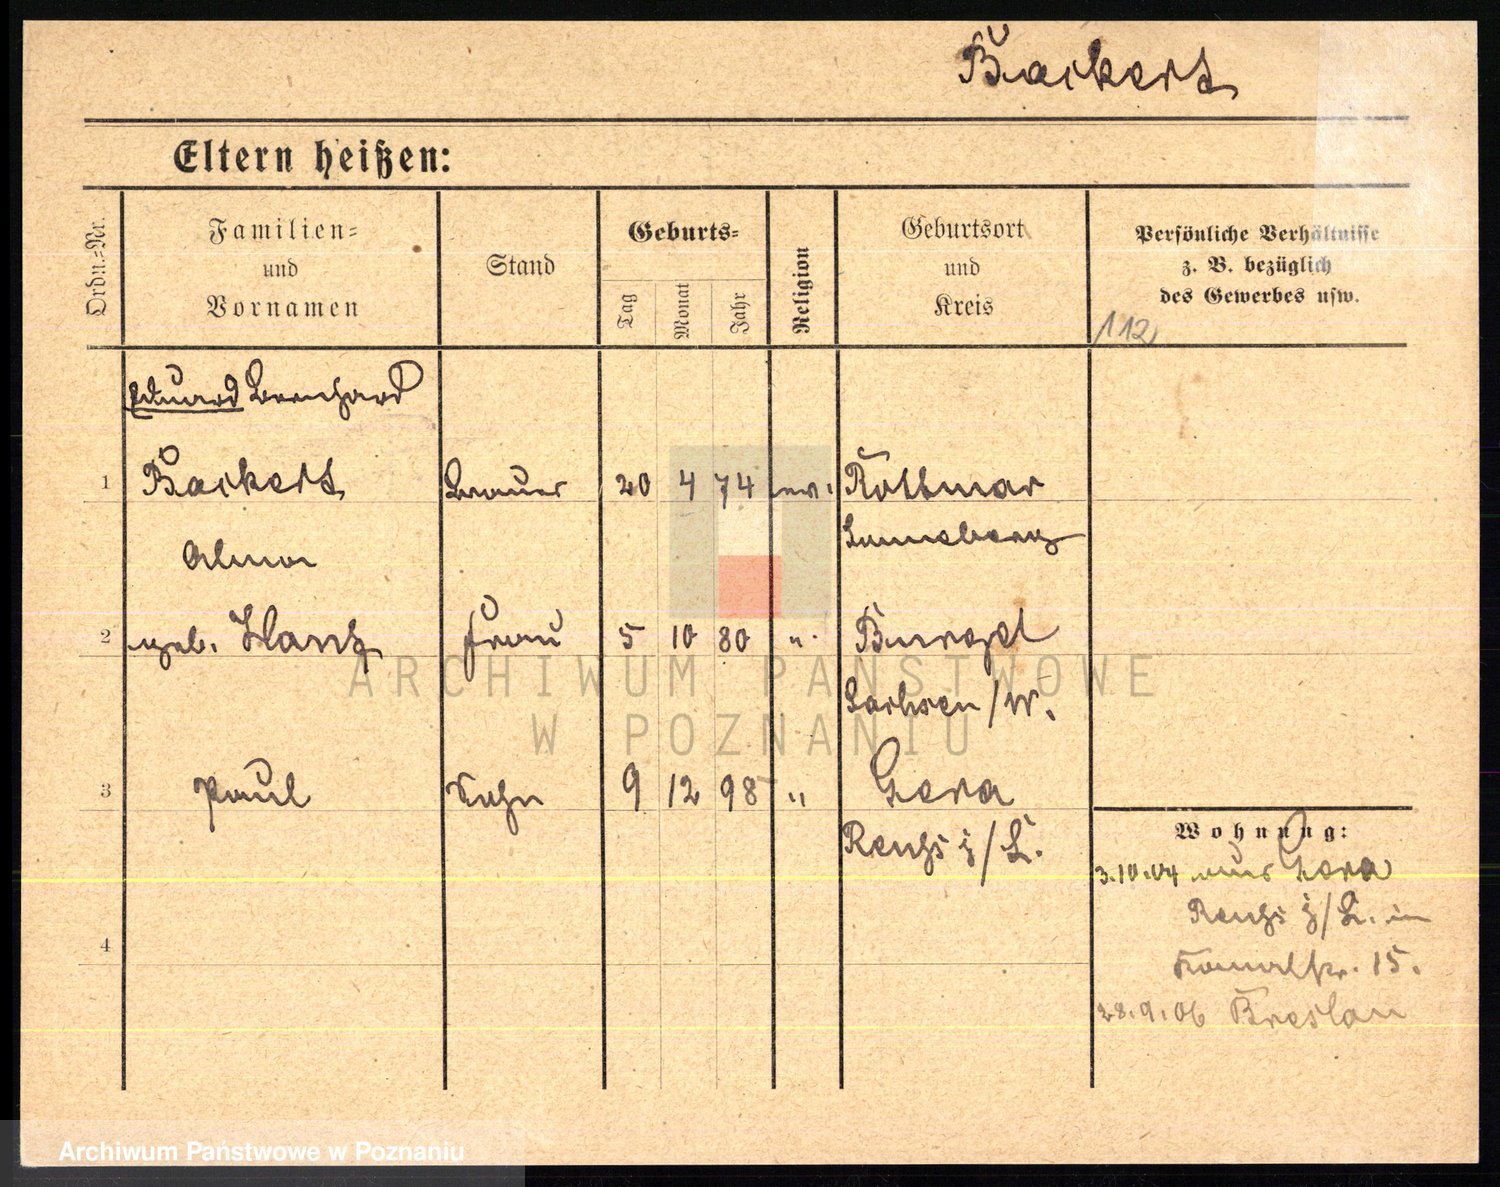 Backert
Eltern heißen:
Ordn.-Nr.
Familien-
und
Vornamen
Stand
Geburts-
Tag
Monat
Jahr
Religion
Geburtsort
und
Kreis
Persönliche Verhältnisse
z. B. bezüglich
des Gewerbes usw.
112
Eduard Bernhard
1 Backert Brauer 20 4 74 ev. Rottmar
Sonneberg
Alma
2 geb. Frau 5 10 80 " Burgel
Sachsen/W.
3 Paul Sohn 9 12 98 " Gera
Reuß j/L.
Wohnung:
3.10.04 aus Gera
Reuß j/L. in
Kanalstr. 15.
4
28.9.06 Breslau
ARCHIWUM PAŃSTWOWE
W POZNANIU
Archiwum Państwowe w Poznaniu